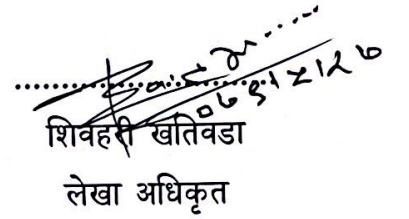 शिवहरी खतिवडा
लेखा अधिकृत